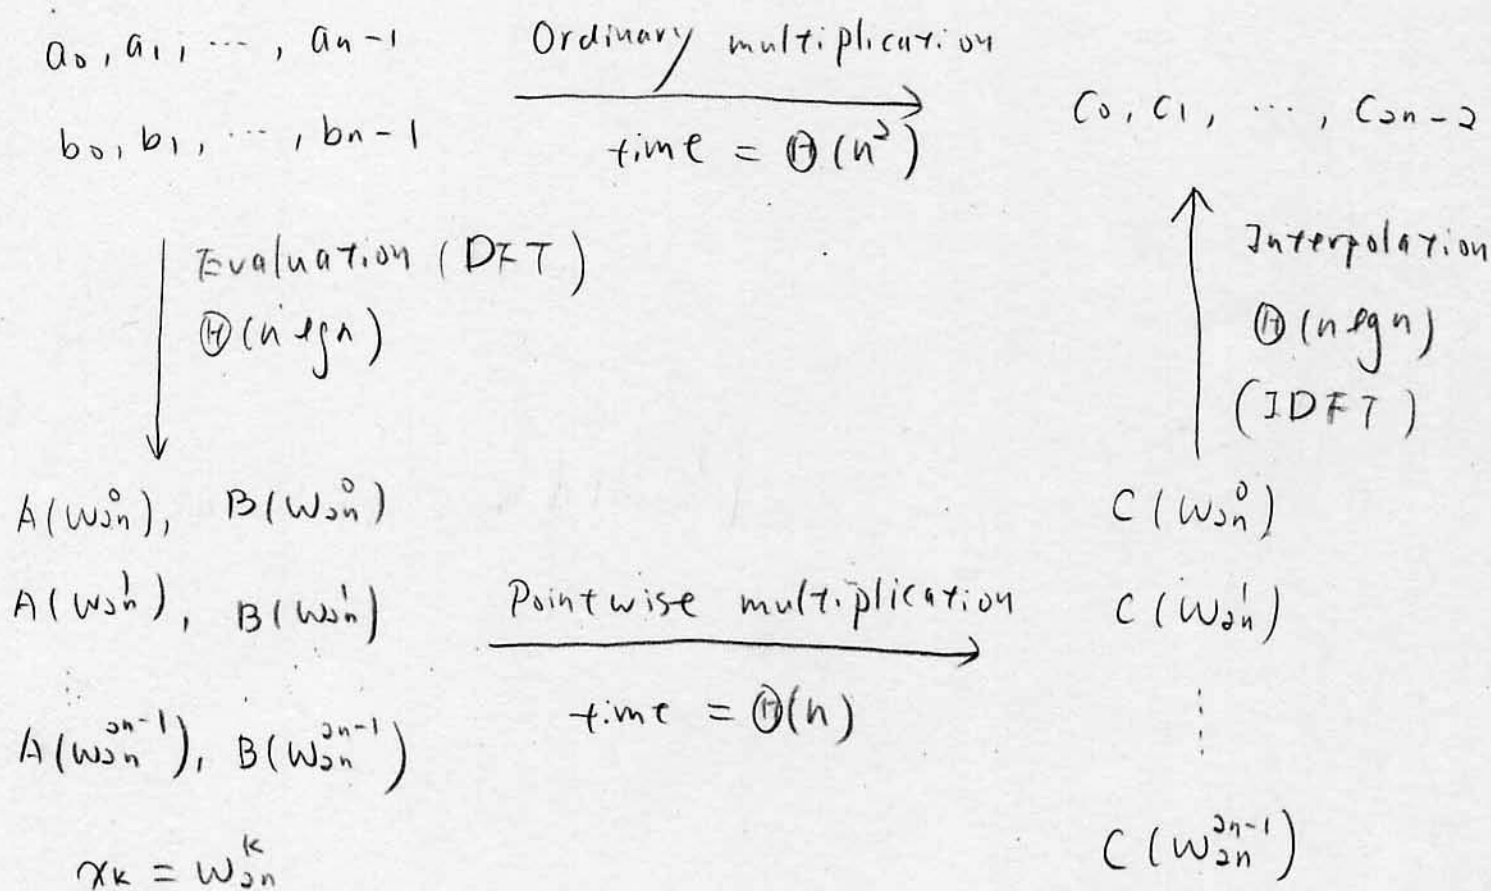 a₀, a₁, ⋯, aₙ₋₁
b₀, b₁, ⋯, bₙ₋₁
Ordinary multiplication
time = Θ(n²)
c₀, c₁, ⋯, c₂ₙ₋₂
Evaluation (DFT)
Θ(n lg n)
Interpolation
Θ(n lg n)
(IDFT)
A(ω₂ₙ⁰), B(ω₂ₙ⁰)
A(ω₂ₙ¹), B(ω₂ₙ¹)
⋮ ⋮
A(ω₂ₙ²ⁿ⁻¹), B(ω₂ₙ²ⁿ⁻¹)
xₖ = ω₂ₙᵏ
Pointwise multiplication
time = Θ(n)
C(ω₂ₙ⁰)
C(ω₂ₙ¹)
⋮
C(ω₂ₙ²ⁿ⁻¹)